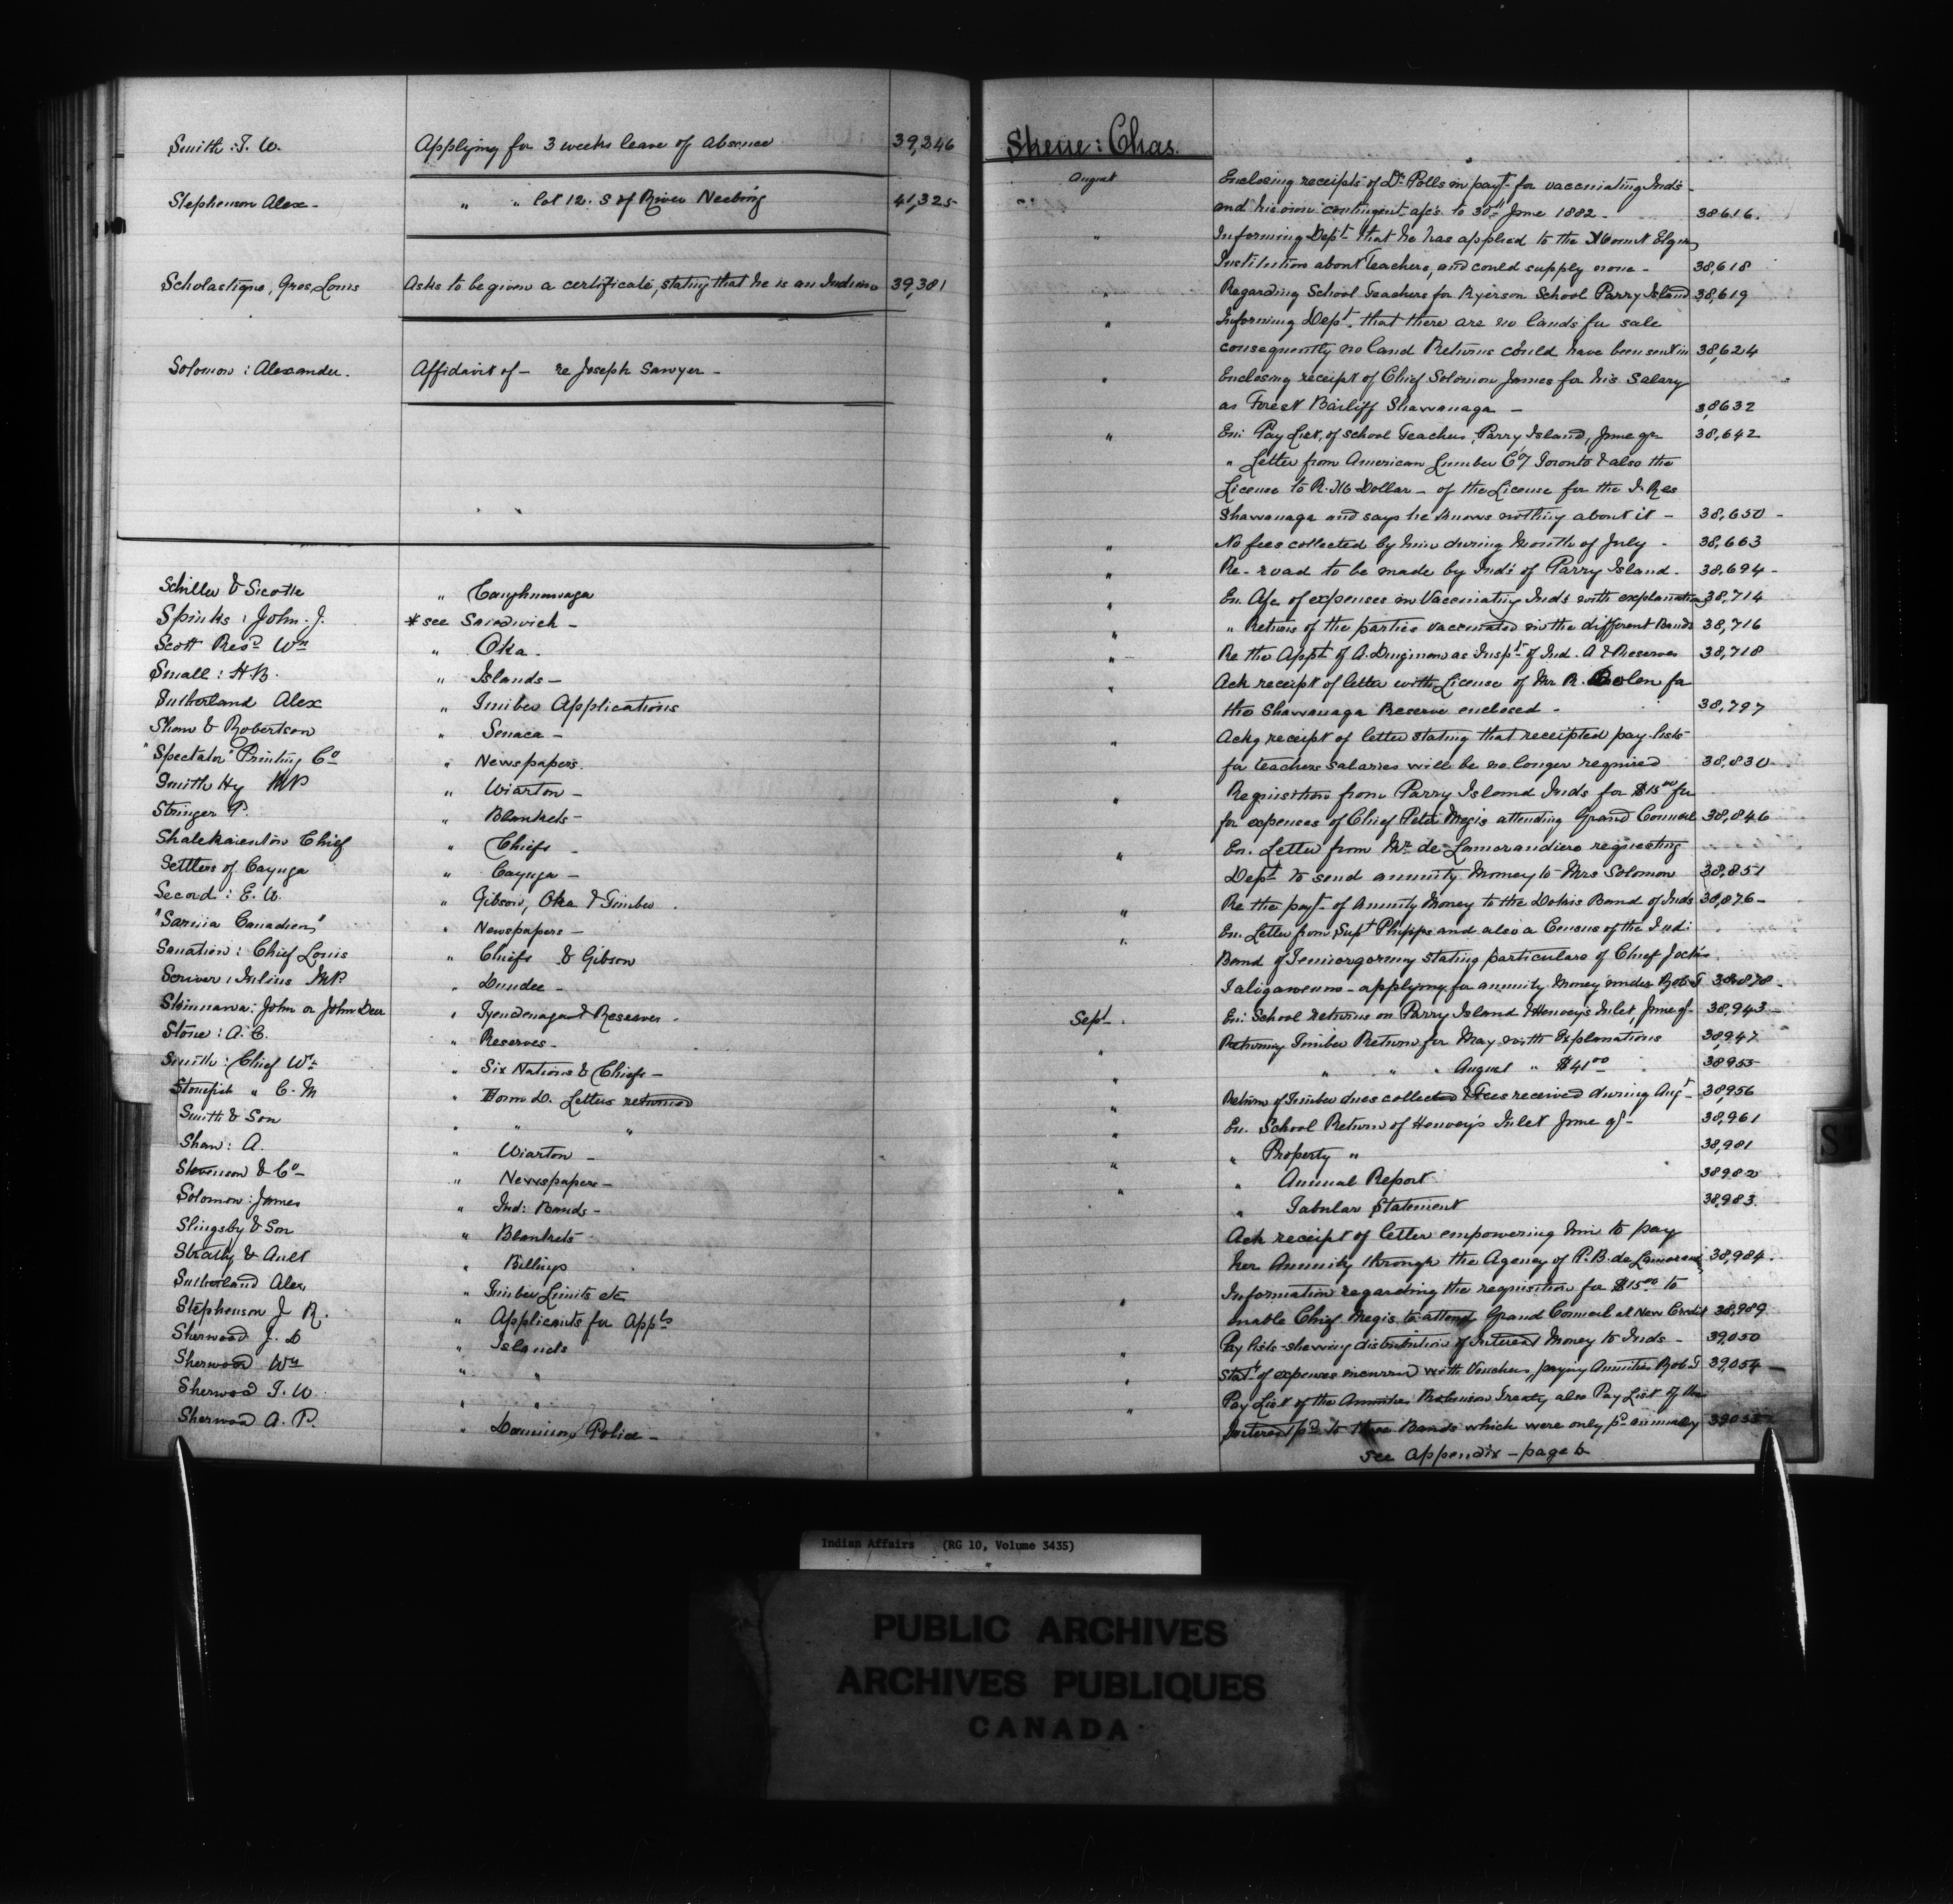 Smith : T. W. Applying for 3 weeks leave of absence 39,246
Stephenson Alex - " " lot 12. S of River Neebing 41,325
Scholastique, Gros Louis Asks to be given a certificate, stating that he is an Indian 39,381
Solomon : Alexander. Affidavit of - re Joseph Sawyer -
Schiller & Sicotte " Caughnawaga
Spinks : John. J. * see Sandwich -
Scott Revd Wm " Oka.
Small : H B. " Islands -
Sutherland Alex " Timber Applications
Shaw & Robertson " Senaca -
"Spectator" Printing Co " Newspapers.
Smith Hy MP " Wiarton -
Stringer P. " Blankets -
Shatekaienton Chief " Chiefs -
Settlers of Cayuga " Cayuga -
Secord : E. W. " Gibson, Oka & Timber.
"Sarnia Canadien" " Newspapers -
Sanation : Chief Louis " Chiefs & Gibson
Scriver : Julius MP. " Dundee -
Skinnawa : John or John Deer " Tyendenaga & Reserves.
Stone : A. C. " Reserves -
Smith : Chief Wm " Six Nations & Chiefs -
Stonefish " C. M " Form D. Letters returned
Smith & Son " " "
Shaw : A. " Wiarton -
Stevenson & Co - " Newspapers -
Solomon : James " Ind: Bands -
Slingsby & Son " Blankets -
Strathy & Ault " Billings
Sutherland Alex " Timber Limits etc
Stephenson J R. " Applicants for Appts
Sherwood J. D " Islands
Sherwood Wm " "
Sherwood T. W " "
Sherwood A. P. " Dominion Police -
Skene : Chas.
August Enclosing receipts of Dr Potts in payt for vaccinating Inds -
and his own contingent a/cs to 30th June 1882 - 38616.
" Informing Dept that he has applied to the Mount Elgin
Institution about teachers, and could supply none - 38,618
" Regarding School Teachers for Ryerson School Parry Island 38,619
" Informing Dept. that there are no lands for sale
consequently no land Returns could have been sent in 38,624
" Enclosing receipt of Chief Solomon James for his Salary
as Forest Bailiff Shawanaga - 38632
" En: Pay List, of School Teachers, Parry Island, June qr 38,642
" Letter from American Lumber Co Toronto & also the
License to R. Mc Dollar - of the License for the I. Res
Shawanaga and says he knows nothing about it - 38,650 -
" No fees collected by him during Month of July - 38,663
" Re - road to be made by Inds of Parry Island. 38,694 -
" En. A/c of expenses in Vaccinating Inds with explanations 38,714
" " Returns of the parties vaccinated in the different Bands 38,716
" Re the Appt of A. as Inspt of Ind. A & Reserves 38,718
" Ack receipt of letter with License of Mr R. Bolen for
the Shawanaga Reserve enclosed - 38,797
" Ackg receipt of letter stating that receipted pay-lists
for teachers salaries will be no longer required 38,830 -
" Requisition from Parry Island Inds for $15 00 for
for expenses of Chief Peter Megis attending Grand Council 38,846
" En. Letter from Mr de Lamorandiere requesting
Dept to send annuity Money to Mrs Solomon 38,851
" Re the payt of Annuity Money to the Dokis Band of Inds 38,876 -
" En. Letter from Supt Phipps and also a Census of the Indi:
Band of stating particulars of Chief
- applying for annuity Money under Rob. T 38,878 -
Sept - En: School returns on Parry Island & Henvey's Inlet, June qr - 38,943 -
" Returning Timber Return for May with Explanations 38,947
" " " " August " $41 00 38955
" Return of Timber dues collected & Fees received during Augt 38,956
" En. School Return of Henvey's Inlet June qr - 38,961
" " Property " 38,981
" " Annual Report 38982
" Tabular Statement 38,983.
Ack receipt of letter empowering him to pay
her Annuity through the Agency of P. B. de Lamorand 38,984.
" Information regarding the requisition for $15 00 to
enable Chief Megis to attend Grand Council at New Credit 38,989
" Pay lists - shewing distribution of Interest Money to Inds - 39,050
" Statt of expenses incurred with Vouchers, paying Annuities Rob. T 39,054 -
" Pay List of the Annuities Robinson Treaty also Pay List of the
Interest pd to three Bands which were only pd annually 39055
see appendix - page b
S
Indian Affairs (RG 10, Volume 3435)
PUBLIC ARCHIVES
ARCHIVES PUBLIQUES
CANADA